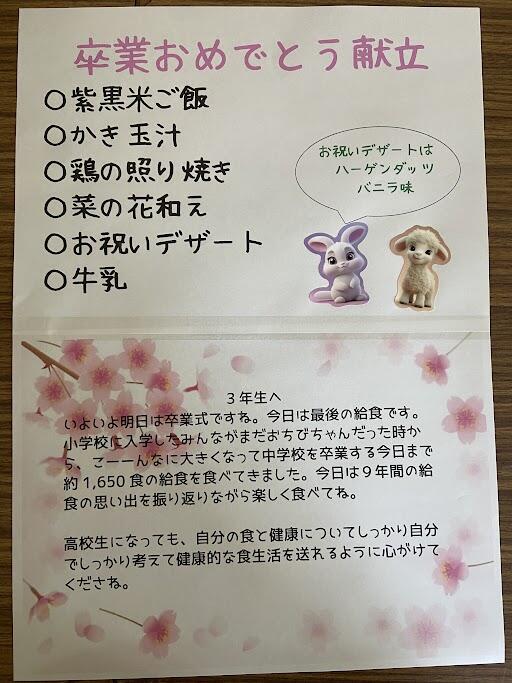 卒業おめでとう献立
〇紫黒米ご飯
〇かき玉汁
〇鶏の照り焼き
〇菜の花和え
〇お祝いデザート
〇牛乳
お祝いデザートは
ハーゲンダッツ
バニラ味
３年生へ
いよいよ明日は卒業式ですね。今日は最後の給食です。
小学校に入学したみんながまだおちびちゃんだった時か
ら、こーーんなに大きくなって中学校を卒業する今日まで
約1,650食の給食を食べてきました。今日は９年間の給
食の思い出を振り返りながら楽しく食べてね。
高校生になっても、自分の食と健康についてしっかり自分
でしっかり考えて健康的な食生活を送れるように心がけて
くださね。